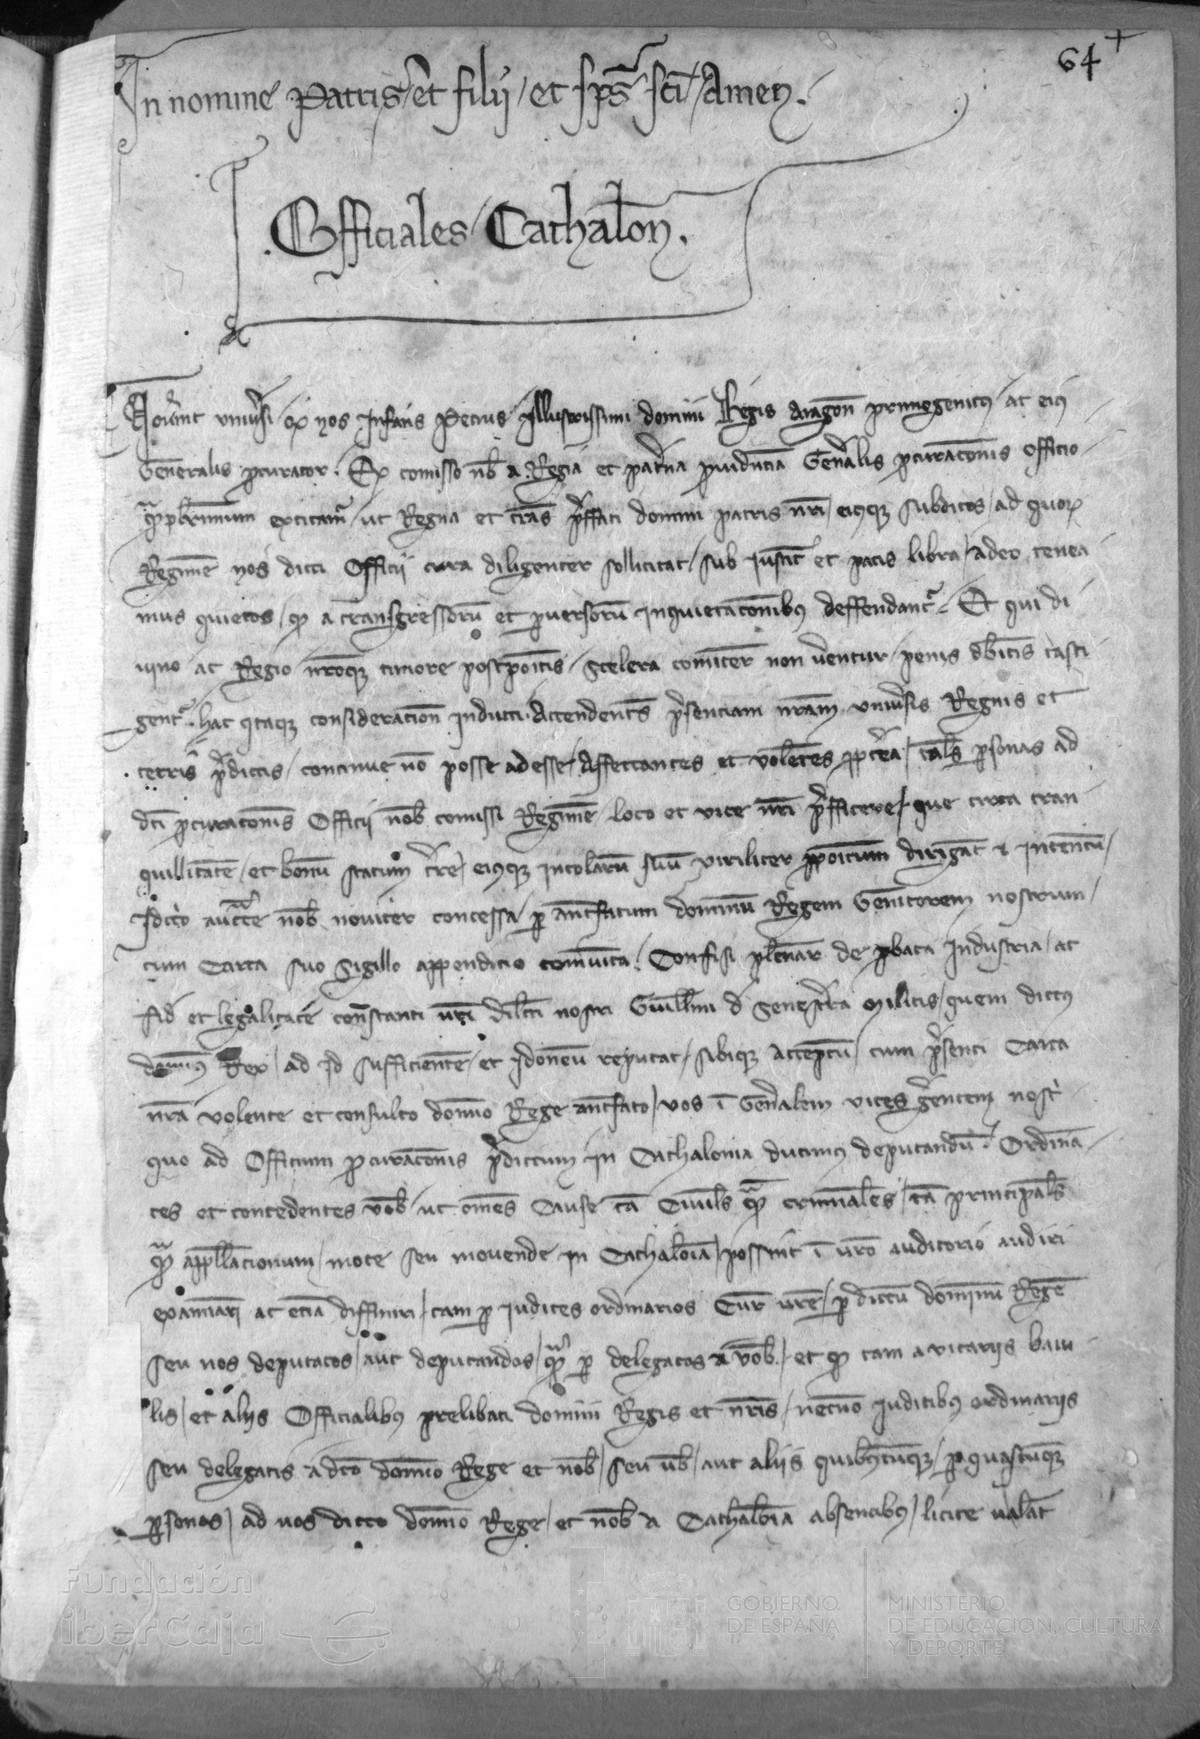 64
In nomine Patris et filii et sps sci Amen.
Officiales Cathalon.
Novint univsi q nos Infans Petrus Illustrissimi domini Regis Aragon primogenitus ac eius
Generalis pcurator. Ex comisso nob a Regia et patna pvidencia Genalis pcuraconis officio
excitamr ut Regna et tras pffati domini patris nri eiusq subditos ad quor
Regime nos dicti Officii cura diligenter sollicitat sub Iustic et pacis libra adeo tenea
mus quietos q a transgressoru et pversoru inquietaconibus deffendantr. Et qui di
vino ac Regio nroq timore postpoitis scelera comicer non verentur penis dbitis casti
gentr. hac itaq consideracion inducti Attendentes psenciam nram univsis Regnis et
terris pdictis continue no posse adesse Affectantes et volentes ppterea tales psonas ad
dci pcuraconis Officii nob comissi Regime loco et vice nri pfficere que circa tran
quillitate et bonu statum tre eiusq incolaru suu viriliter ppoitum dirigat & intentu
Idcco aucte nob noviter concessa p antefatum dominu Regem Genitorem nostrum
cum Carta suo Sigillo appendicio comunita. Confisi plenar de pbata Industria ac
fid et legalitate constanti vri dilcti nostri Guillmi d militis quem dictus
domnus Rex ad id sufficiente et Idoneu reputat sibiq acceptu cum psenti Carta
nra volente et consulto domno Rege antefato vos i Genalem vices gerentem nostr
quo ad Officium pcuraconis pdictum in Cathalonia ducimus deputandu. Ordina
tes et concedentes vob ut omes Cause ta Civiles qm criminales ta principales
qm appellacionum mote seu movende in Cathalonia possint i vro auditorio audiri
examinari ac etia diffiniri tam p iudices ordinarios Cur vre p dictu dominu Rege
seu nos deputatos aut deputandos qm p delegatos a vob. et q tam a vicariis baiu
lis et aliis Officialibus prelibati domini Regis et nris necno iudicibus ordinariis
seu delegatis a dco domno Rege et nob seu vob aut aliis quibuscuq p quascuq
psonas ad vos dicto domno Rege et nob a Cathalonia absentibus licite valeat
Fundación
iberCaja
GOBIERNO
DE ESPAÑA
MINISTERIO
DE EDUCACIÓN, CULTURA
Y DEPORTE